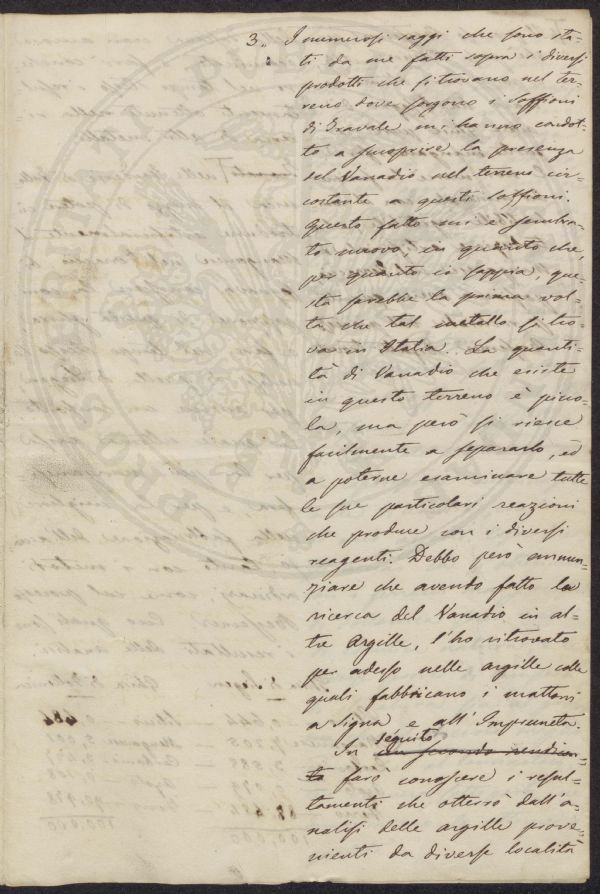 3.. I numerosi saggi che sono sta-
ti da me fatti sopra i diversi
prodotti che si trovano nel ter-
reno dove sorgono i soffioni
di Travale mi hanno condot-
to a scuoprire la presenza
del Vanadio nel terreno cir-
costante a questi soffioni.
Questo fatto mi è sembra-
to nuovo, in quanto che,
per quanto io sappia, que-
sta sarebbe la prima vol-
ta che tal metallo si tro-
va in Italia. La quanti-
tà di Vanadio che esiste
in questo terreno è picco-
la, ma però si riesce
facilmente a separarlo, ed
a poterne esaminare tutte
le sue particolari reazioni
che produce con i diversi
reagenti. Debbo però annun-
ziare che avendo fatto la
ricerca del Vanadio in al-
tre Argille, l'ho ritrovato
per adesso nelle argille colle
quali fabbricano i mattoni
a Signa e all'Impruneta.
seguito
In un secondo rendicon-
to farò conoscere i resul-
tamenti che otterrò dall'a-
nalisi delle argille prove-
nienti da diverse località